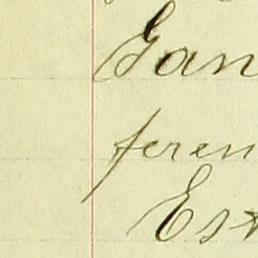 Gan
feren
Est